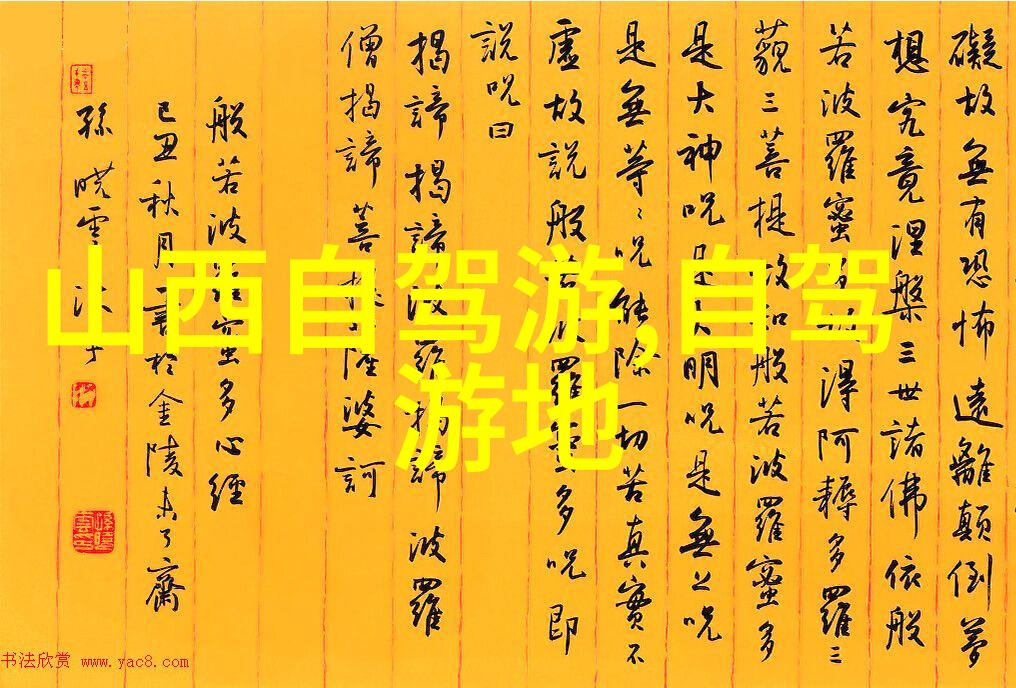 礙故無有恐怖遠離顛倒夢
想究竟涅槃三世諸佛依般
若波羅蜜多故得阿耨多羅三
藐三菩提故知般若波羅蜜多
是大神呪是大明呪是無上呪
是無等〻呪能除一切苦真實不
虛故說般若波羅蜜多呪即
說呪曰
揭諦揭諦波羅揭諦波羅
僧揭諦菩提薩婆訶
般若波羅蜜多心經
己丑秋月書於金陵未了齋
孫曉雲沐手
山西自驾游,自驾
游地
书法欣赏 www.yac8.com